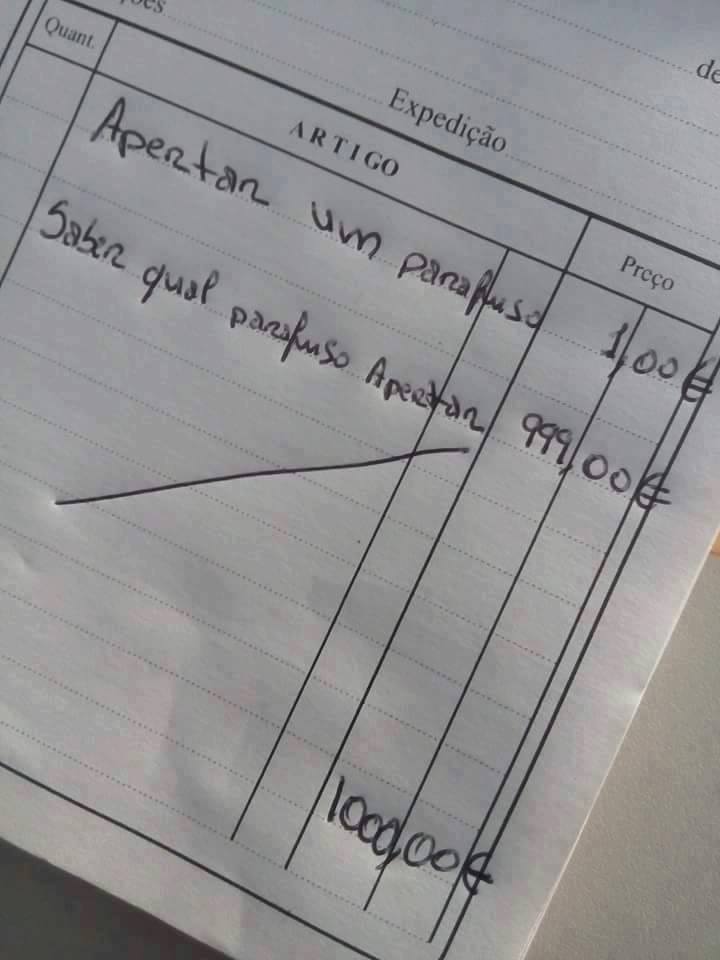 de
Expedição
Quant.
ARTIGO
Preço
Apertar um parafuso 1,00€
Saber qual parafuso Apertar 999,00€
1000,00€